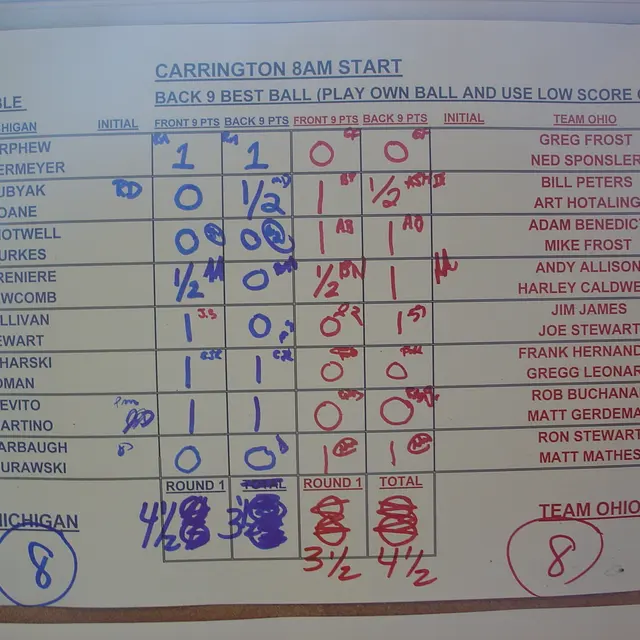 CARRINGTON 8AM START
BLE BACK 9 BEST BALL (PLAY OWN BALL AND USE LOW SCORE
CHIGAN INITIAL FRONT 9 PTS BACK 9 PTS FRONT 9 PTS BACK 9 PTS INITIAL TEAM OHIO
RPHEW 1 1 0 0 GREG FROST
ERMEYER NED SPONSLER
UBYAK 0 1/2 1 1/2 BILL PETERS
OANE ART HOTALING
HOTWELL 0 0 1 AB 1 AB ADAM BENEDIC
URKES MIKE FROST
RENIERE 1/2 0 1/2 1 ANDY ALLISON
WCOMB HARLEY CALDWE
LLIVAN 1 J.S 0 0 1 JIM JAMES
EWART JOE STEWART
HARSKI 1 1 0 0 FRANK HERNAND
OMAN GREGG LEONAR
EVITO 1 1 0 0 ROB BUCHANA
ARTINO MATT GERDEMA
ARBAUGH 0 0 1 1 RON STEWART
URAWSKI MATT MATHES
ROUND 1 TOTAL ROUND 1 TOTAL
MICHIGAN 4 1/2 3 1/2 3 1/2 4 1/2 TEAM OHIO
8 8